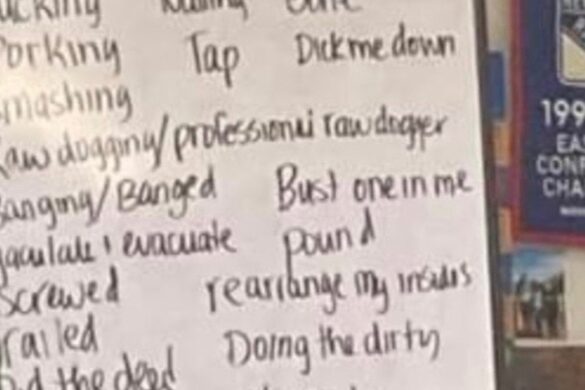 Porking Tap Dick me down
mashing
raw dogging/professional raw dogger
Banging/Banged Bust one in me
jaculate & evacuate pound
Screwed rearrange my insides
railed Doing the dirty
the deed
199
EA
CON
CHA